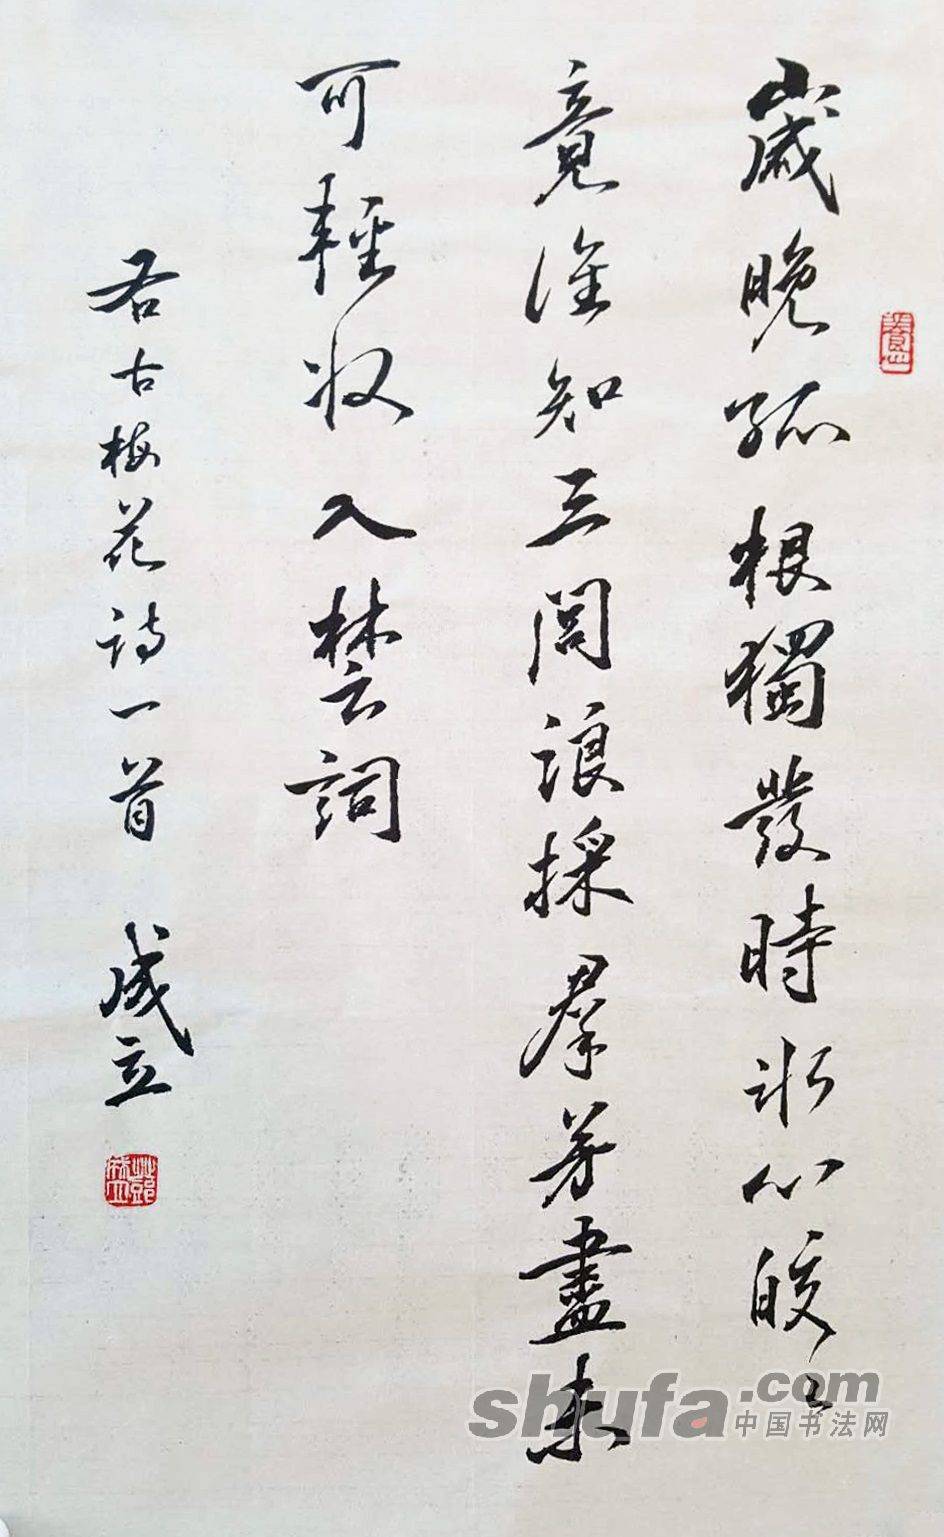 歲晚孤根獨發時冰心皎々
竟誰知三閭浪採群芳盡未
可輕收入楚詞
右古梅花詩一首 成立
shufa.com
中国书法网